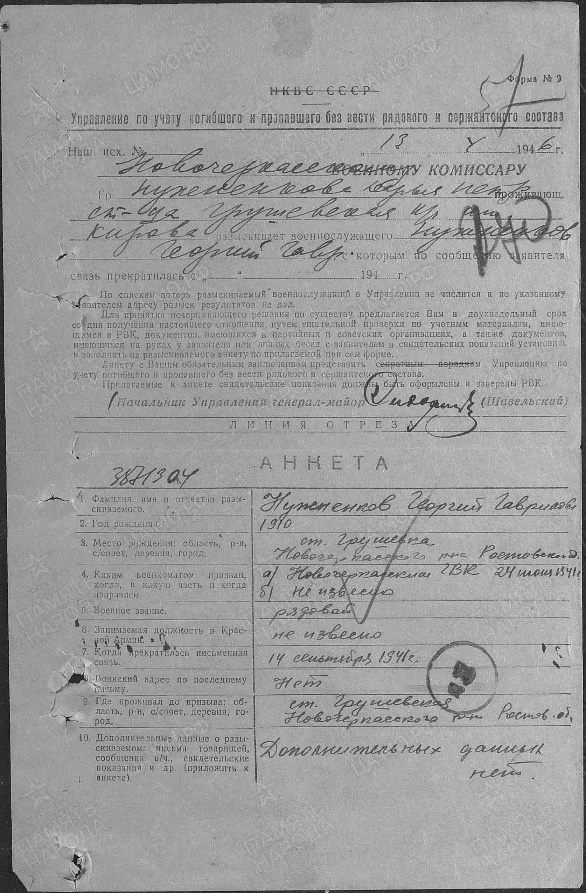 Форма № 9
57
НКВС СССР
Управление по учету погибшего и пропавшего без вести рядового и сержантского состава
Наш. исх. № 13 4 1946 г.
Новочеркасском ВОЕННОМУ КОМИССАРУ
Гр Нужненкова проживающ.
ст-ца Грушевская
Кирова разыскивает военнослужащего Нужненков
Георгий Гавр с которым по сообщению заявителя
связь прекратилась с „ “ 194 г.
По спискам потерь разыскиваемый военнослужащий в Управлении не числится и по указанному
заявителем адресу розыск результатов не дал.
Для принятия исчерпывающего решения по существу предлагается Вам в двухнедельный срок
со дня получения настоящего отношения, путем тщательной проверки по учетным материалам, имею-
щимся в РВК, документов, имеющихся в партийных и советских организациях, а также документов,
имеющихся на руках у заявителя или личных бесед с заявителем и свидетельских показаний установить
и заполнить на разыскиваемого анкету по прилагаемой при сем форме.
Анкету с Вашим обязательным заключением представить секретным порядком Управлению по
учету погибшего и пропавшего без вести рядового и сержантского состава.
Прилагаемые к анкете свидетельские показания должны быть оформлены и заверены РВК.
Начальник Управления генерал-майор (Шавельский)
ЛИНИЯ ОТРЕЗА
АНКЕТА
1. Фамилия, имя и отчество разы-
скиваемого. Нужненков Георгий Гаврилович
2. Год рождения 1910
3. Место рождения: область, р-н,
с/совет, деревня, город. ст. Грушевка
Новочеркасского р-на Ростовской о.
4. Каким военкоматом призван,
когда, в какую часть и когда
направлен. а) Новочеркасским ГВК 24 июня 1941г
б) Не извесно
5. Военное звание. рядовой
6. Занимаемая должность в Крас-
ной Армии. не извесно
7. Когда прекратилась письменная
связь. 14 сентября 1941г.
8. Воинский адрес по последнему
письму. Нет
9. Где проживал до призыва: об-
ласть, р-н, с/совет, деревня, го-
род. ст. Грушевская
Новочеркасского р-на Ростов. об.
10. Дополнительные данные о разы-
скиваемом: письма товарищей,
сообщения в/ч., свидетельские
показания и др. (приложить к
анкете). Дополнительных данных
нет.